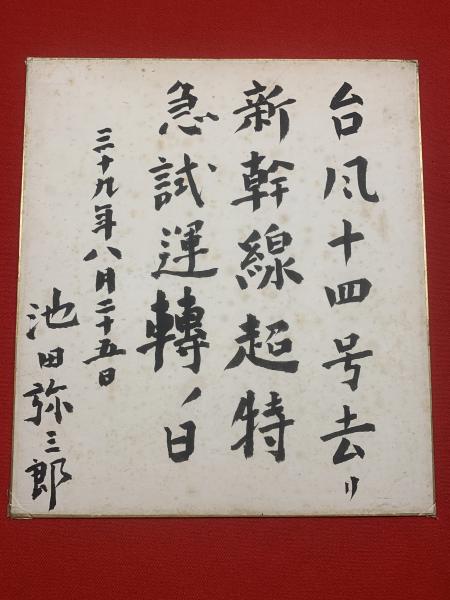 台風十四号去リ
新幹線超特
急試運轉ノ日
三十九年八月二十五日
池田弥三郎